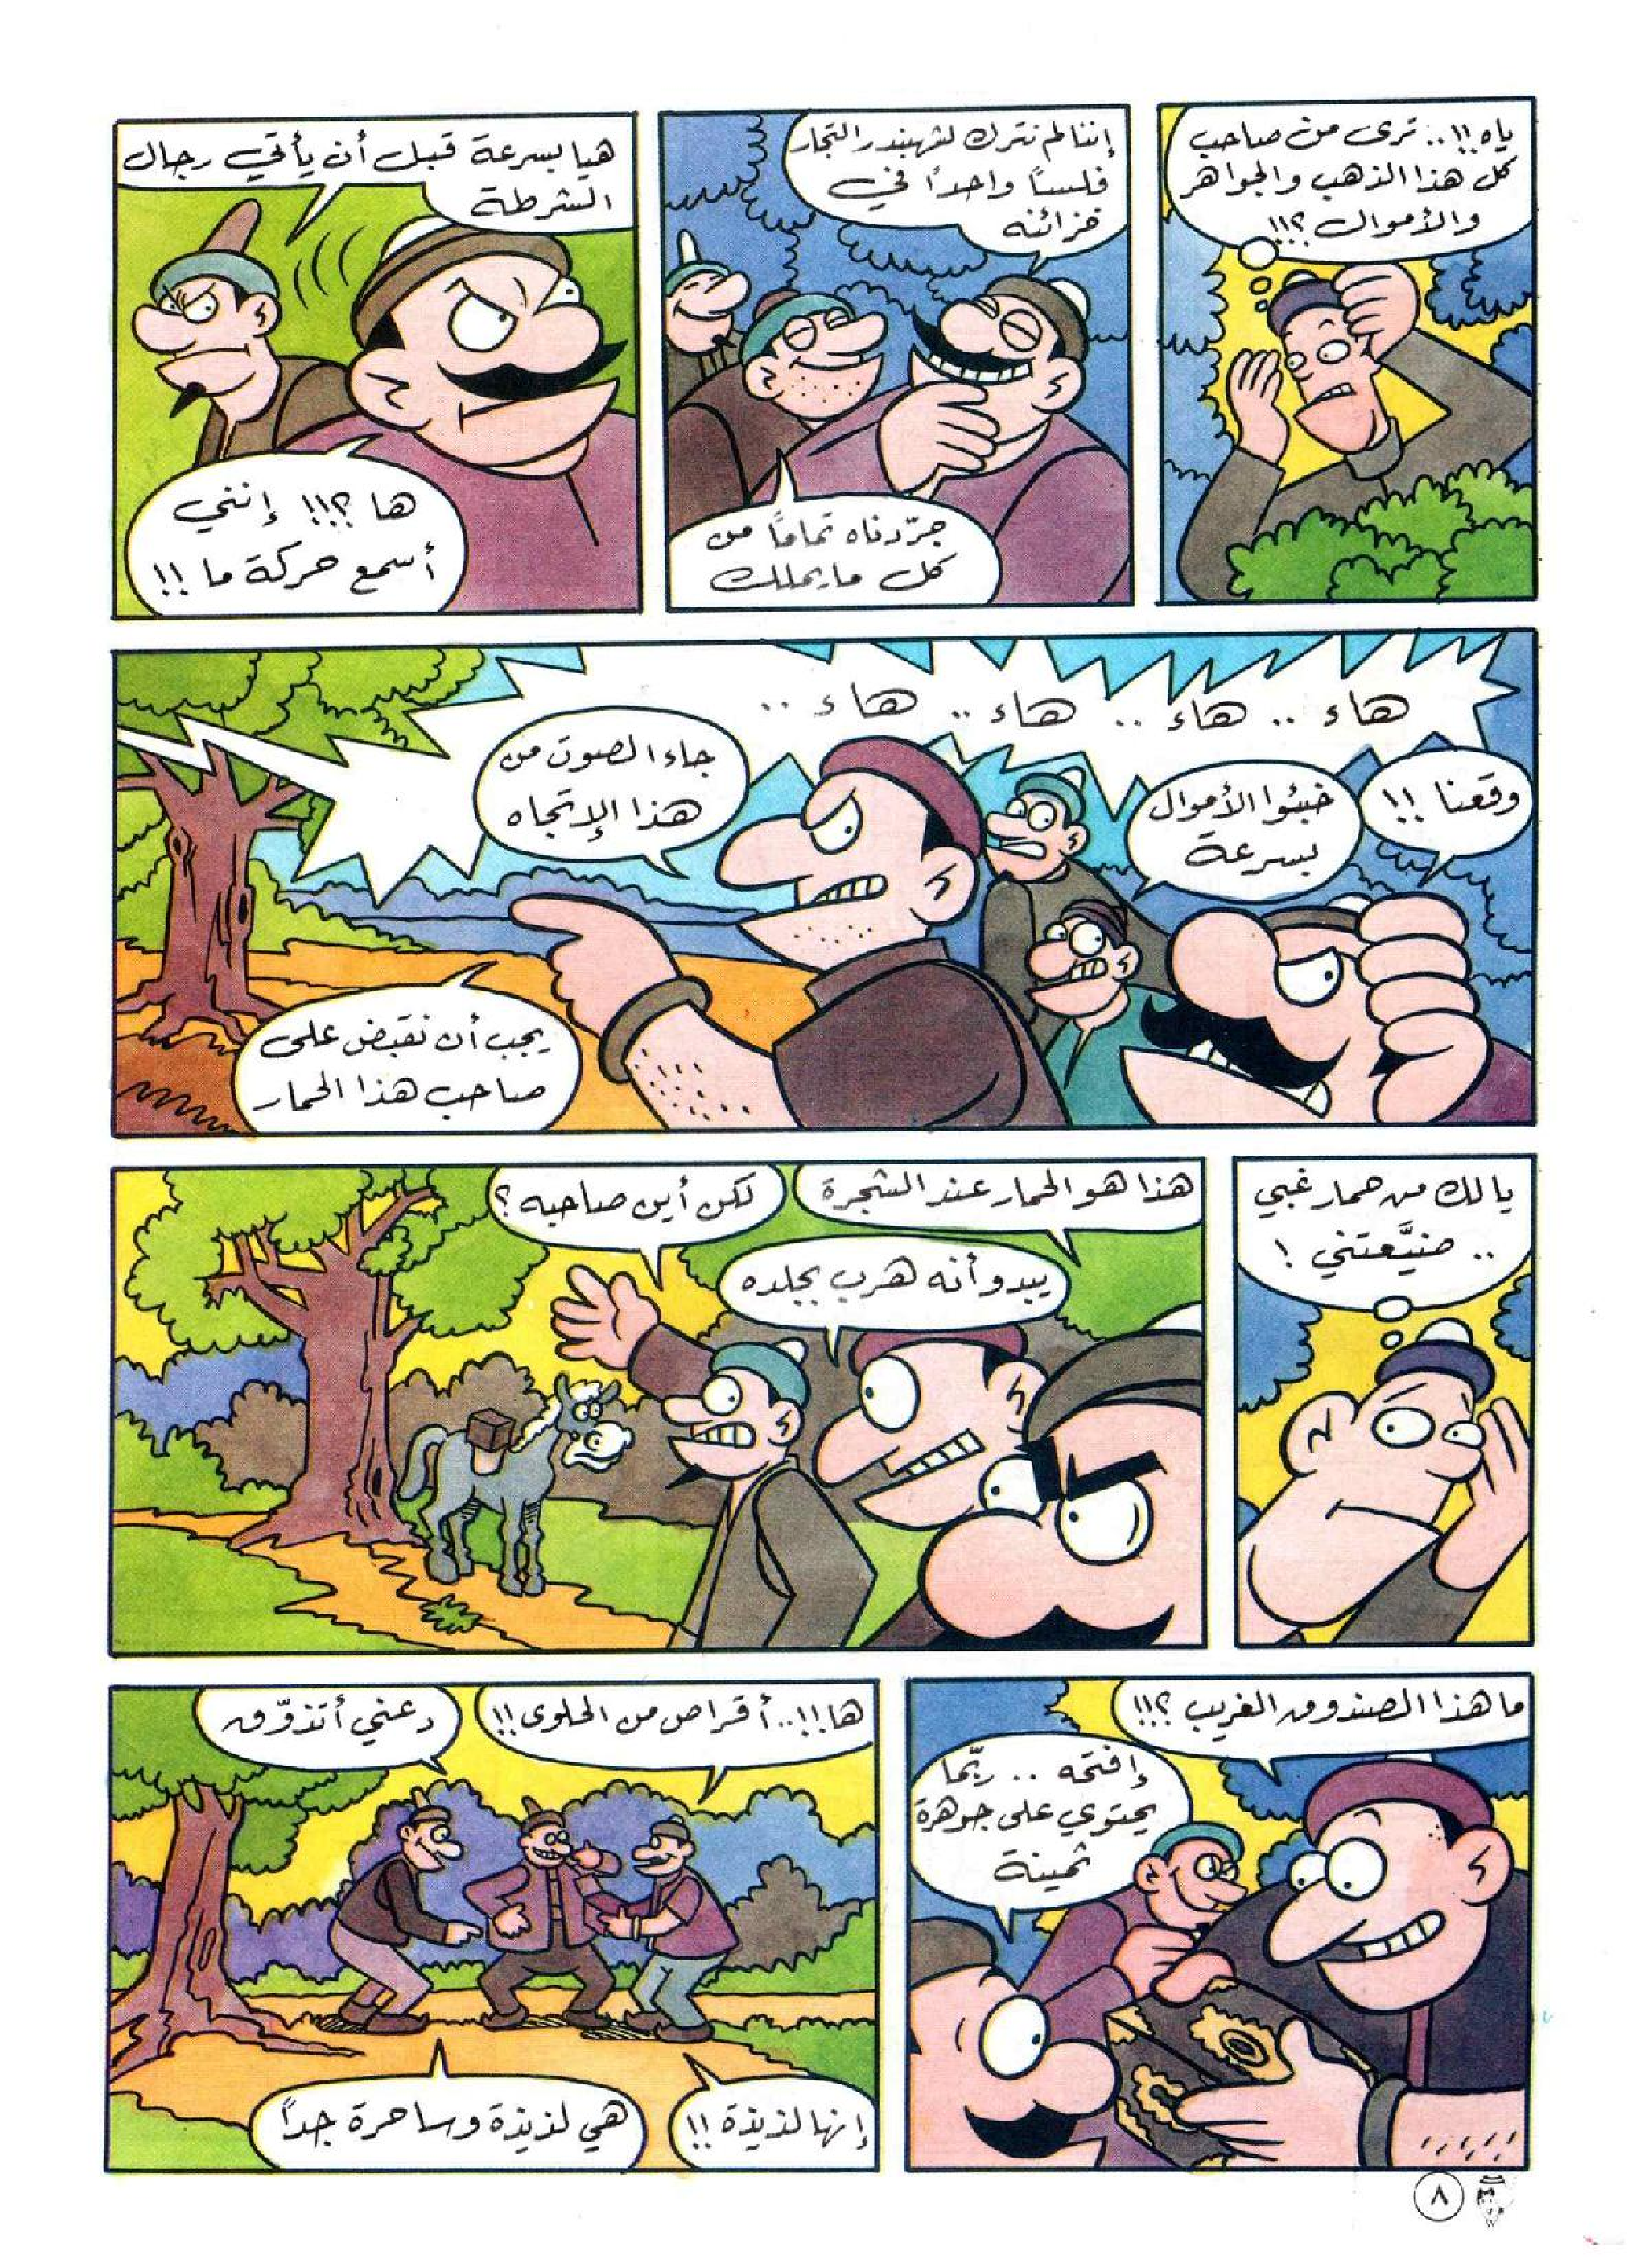 ياه !!.. ترى من صاحب
كل هذا الذهب والجواهر
والأموال ؟!!
إننا لم نترك لشهبندر التجار
فلساً واحداً في
خزائنه
جرّدناه تماماً من
كل ما يملك
هيا بسرعة قبل أن يأتي رجال
الشرطة
ها ؟!!! إنني
أسمع حركة ما !!
هاء .. هاء .. هاء .. هاء ..
وقعنا !!
خبئوا الأموال
بسرعة
جاء الصوت من
هذا الإتجاه
يجب أن نقبض على
صاحب هذا الحمار
يا لك من حمار غبي
.. ضيَّعتني !
هذا هو الحمار عند الشجرة
لكن أين صاحبه ؟
يبدو أنه هرب بجلده
ما هذا الصندوق الغريب ؟!!
إفتحه .. ربّما
يحتوي على جوهرة
ثمينة
ها !!.. أقراص من الحلوى !!
دعني أتذوّق
إنها لذيذة !!
هي لذيذة وساحرة جداً
٨